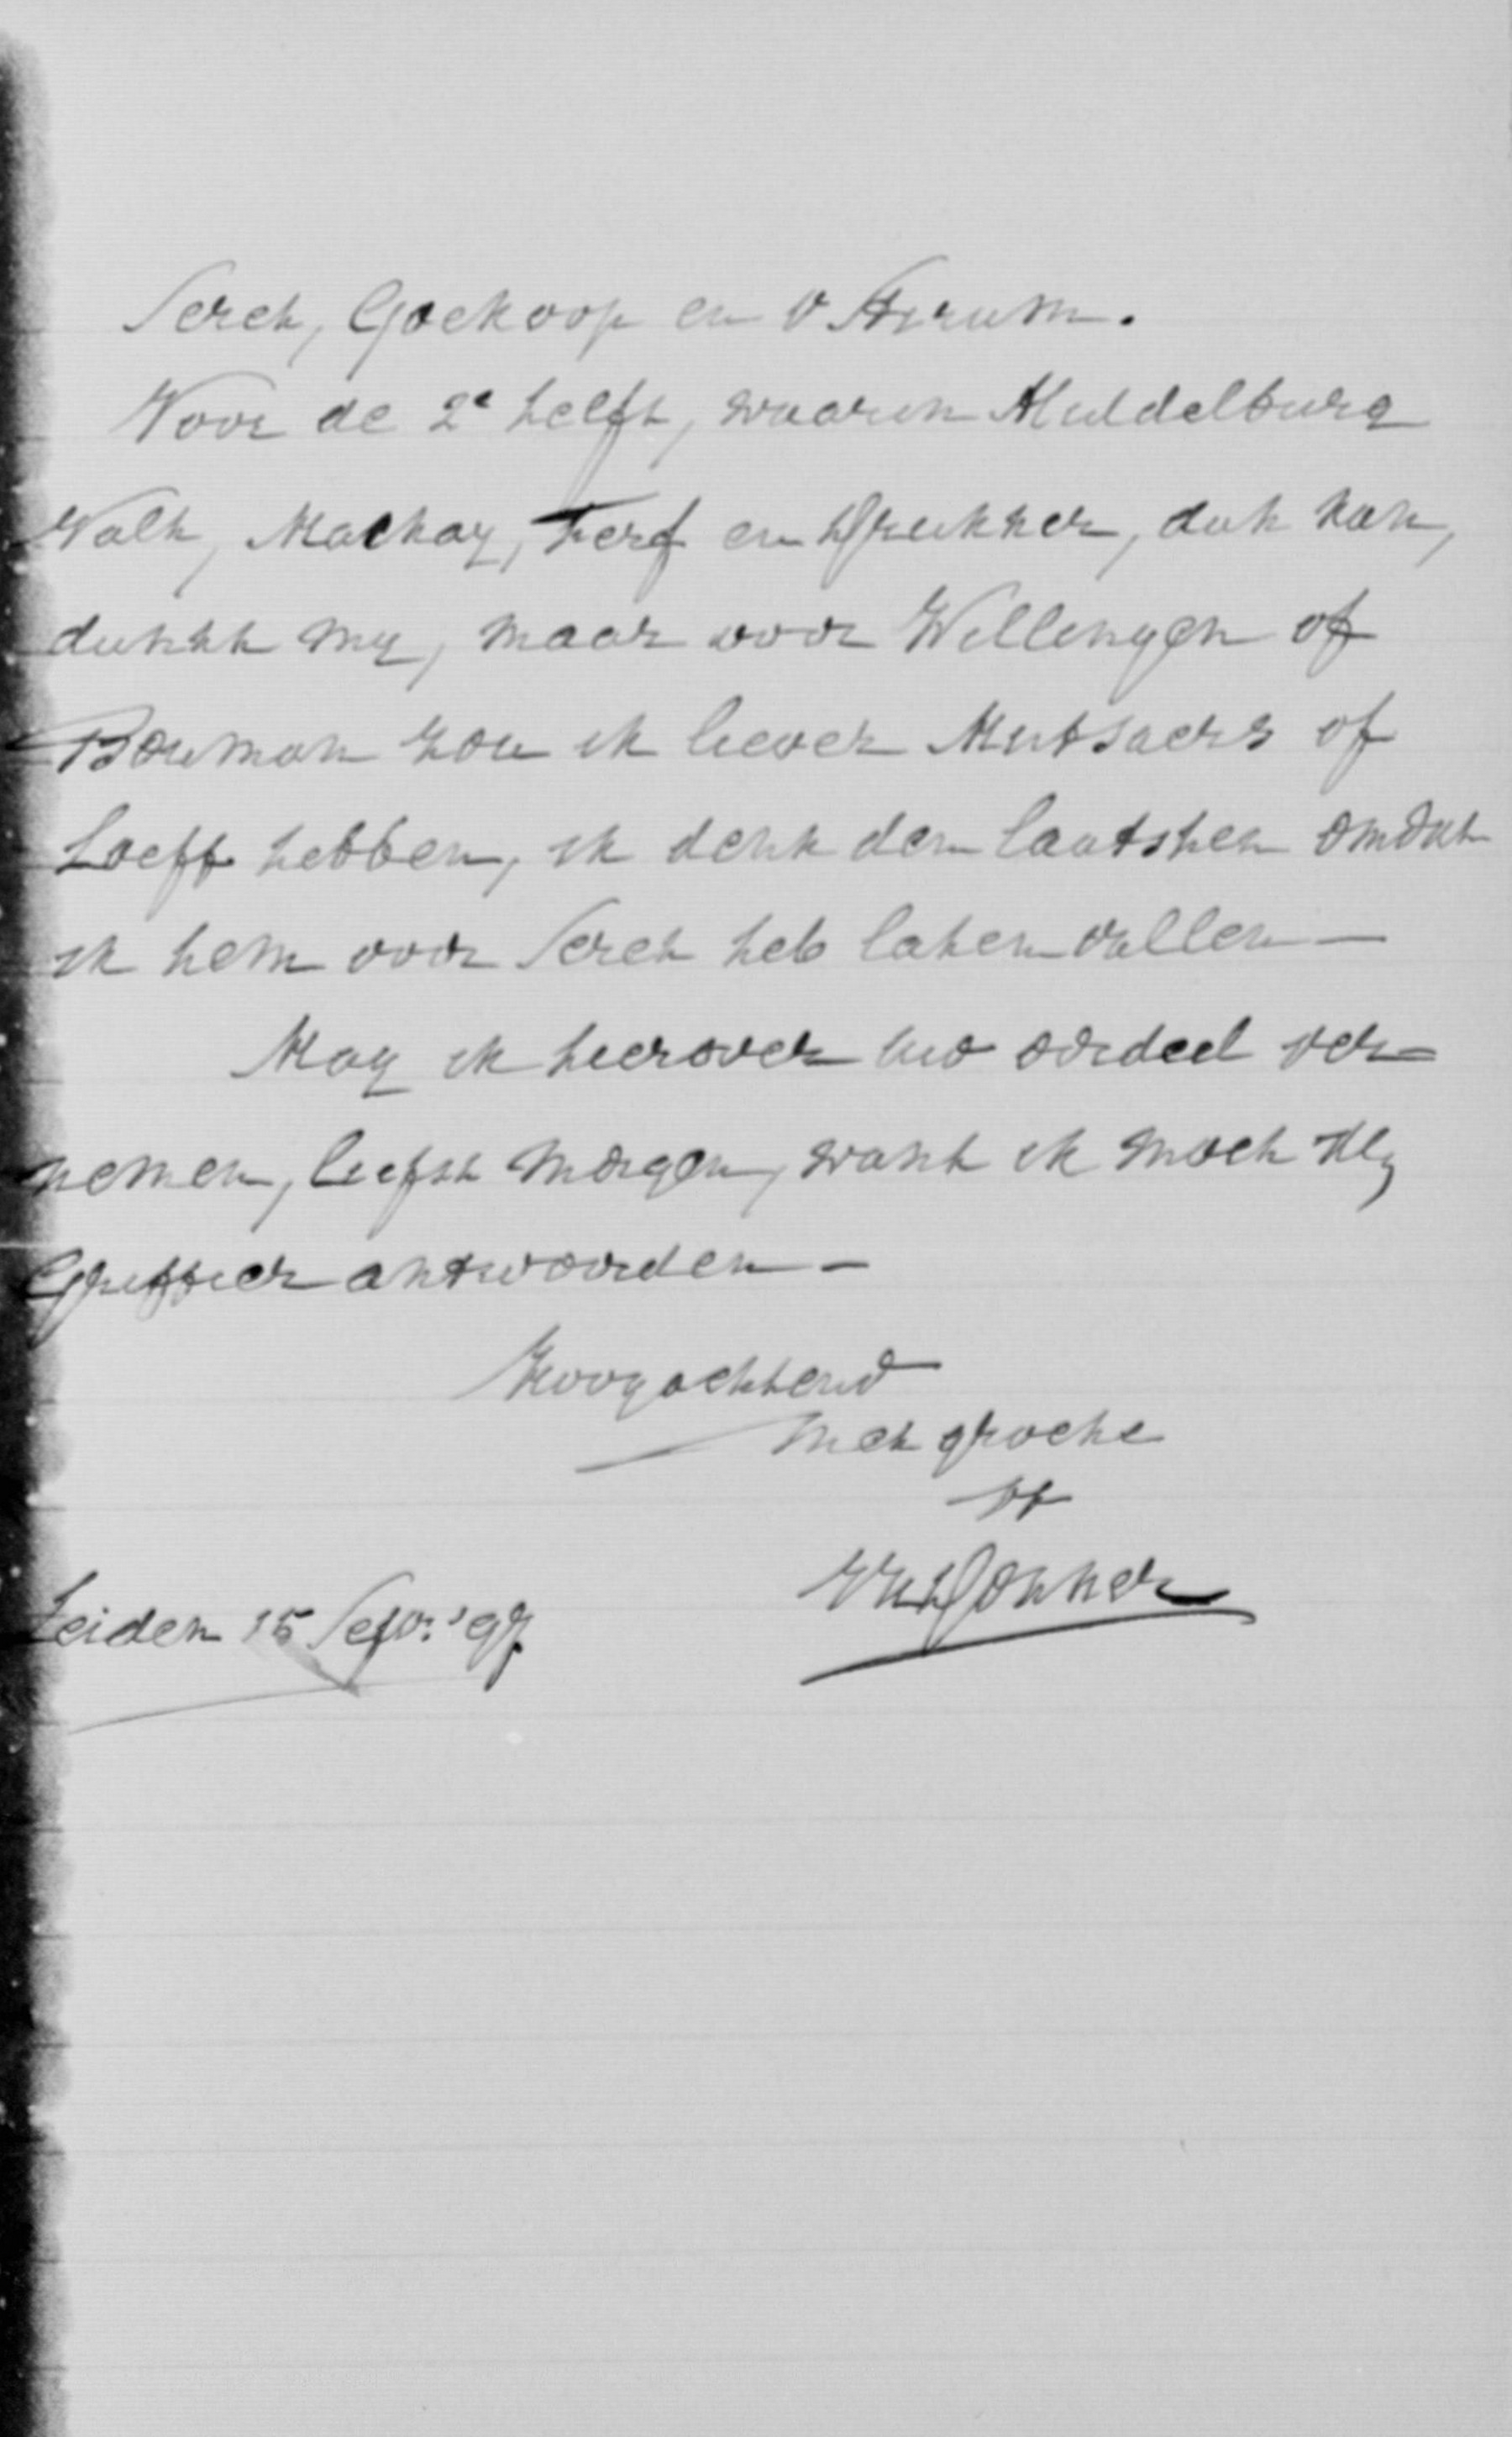 Seret, Goekoop en v Styrum.
Voor de 2e helft, waarin Middelburg
Valk, Mackay, Ferf en Drukker, dat kan,
dunkt my, maar voor Willingen of
Bouman zou ik liever Mutsaers of
Loeff hebben, ik denk den laatsten omdat
ik hem voor Seret heb laten vallen —
May ik hierover uw oordeel ver=
nemen, liefst morgen, want ik moet
Griffier antwoorden —
Hoogachtend
met groete
tt
Donner
Leiden 15 Sept: '97